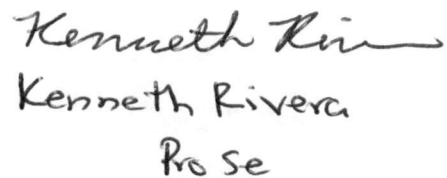 Kenneth Rivera
Kenneth Rivera
Pro Se